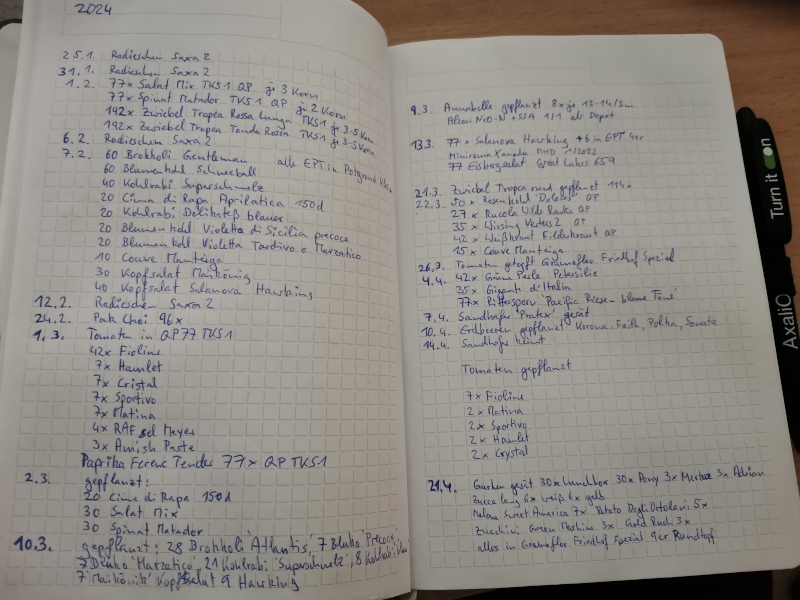 2024
25.1. Radieschen Saxa 2
31.1. Radieschen Saxa 2
1.2. 77x Salat Mix TKS1 QP je 3 Korn
77x Spinat Matador TKS1 QP je 2 Korn
192x Zwiebel Tropea Rossa Lunga TKS1 je 3-5 Korn
192x Zwiebel Tropea Tonda Rossa TKS1 je 3-5 Korn
6.2. Radieschen Saxa 2
7.2. 60 Brokkoli Gentleman alle EPT in Potgrond
60 Blumenkohl Schneeball
40 Kohlrabi Superschmelz
20 Cima di Rapa Aprilatica 150d
20 Kohlrabi Delikateß blauer
20 Blumenkohl Violetta di Sicilia precoce
20 Blumenkohl Violetta Tardivo o Marzatico
10 Couve Manteiga
30 Kopfsalat Maikönig
40 Kopfsalat Salanova Hawking
12.2. Radieschen Saxa 2
24.2. Pak Choi 96x
1.3. Tomaten in QP77 TKS1
42x Fioline
7x Hamlet
7x Cristal
7x Sportivo
7x Matina
4x RAF sel Meyer
3x Amish Paste
Paprika Ferenc Tender 77x QP TKS1
2.3. gepflanzt:
20 Cima di Rapa 150d
30 Salat Mix
30 Spinat Matador
10.3. gepflanzt: 28 Brokkoli Atlantis, 7 Bluko 'Precoce',
7 Bluko 'Marzatico', 21 Kohlrabi 'Superschmelz', 8 Kohlrabi
7 'Maikönik' Kopfsalat 9 Hawking
9.3. Annabelle gepflanzt 8x je 13-14/3m
N+SSA 1/1 als Depot
13.3. 77x Salanova Hawking +6 in EPT 4er
Miniroma Xanadu MHD 1/2022
77 Eisbergsalat Great Lakes 659
21.3. Zwiebel Tropea rund gepflanzt 114x
22.3. 50x Rosenkohl 'Dolores' QP
27x Rucola Wilde Rauke QP
35x Wirsing Vertus 2 QP
42x Weißkraut Filderkraut QP
15x Couve Manteiga
26.3. Tomaten getopft Gramoflor Friedhof Spezial
4.4. 42x Grüne Perle Petersilie
35x Giganti d'Italia
77x Rittersporn 'Pacific Riesen blaue Töne'
7.4. Sandhafer 'Pratex' gesät
10.4. Erdbeeren gepflanzt Korona, Faith, Polka, Sonata
14.4. Sandhafer keimt
Tomaten gepflanzt
7x Fioline
2x Matina
2x Sportivo
2x Hamlet
2x Crystal
21.4. Gurken gesät 30x Lunchbox 30x Amy 3x 3x Adrian
Zucca lang 6x weiß 6x gelb
Melone Sweet America 7x Patato Degli Ortolani 5x
Zucchini Green 3x Gold Rush 3x
alles in Gramoflor Friedhof Spezial 9er Rundtopf
Turn it on
AxaliO